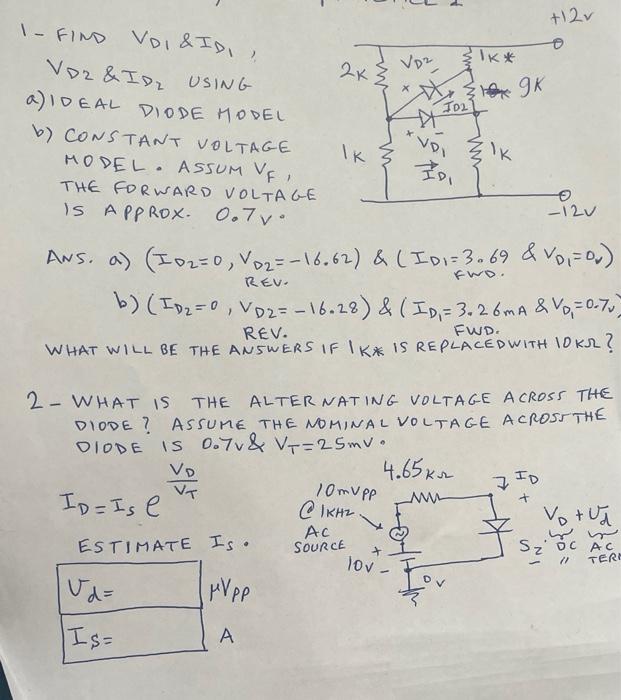 1- FIND VD1 & ID1,
VD2 & ID2 USING
a) IDEAL DIODE MODEL
b) CONSTANT VOLTAGE
MODEL. ASSUM VF,
THE FORWARD VOLTAGE
IS APPROX. 0.7V.
+12V
2K
VD2
-
1K*
+
9K
ID2
+
-
1K
VD1
1K
ID1
-12V
ANS. a) (ID2=0, VD2=-16.62) & (ID1=3.69 & VD1=0V)
REV. FWD.
b) (ID2=0, VD2=-16.28) & (ID1=3.26mA & VD1=0.7V)
REV. FWD.
WHAT WILL BE THE ANSWERS IF 1K* IS REPLACED WITH 10KΩ?
2- WHAT IS THE ALTERNATING VOLTAGE ACROSS THE
DIODE? ASSUME THE NOMINAL VOLTAGE ACROSS THE
DIODE IS 0.7V & VT=25mV.
ID = IS e VD/VT
ESTIMATE IS.
Vd= μVPP
IS= A
4.65KΩ
ID
10mVPP
@1KHZ
AC
SOURCE
+
10V -
0V
+
VD + Vd
DC AC
TERM
-